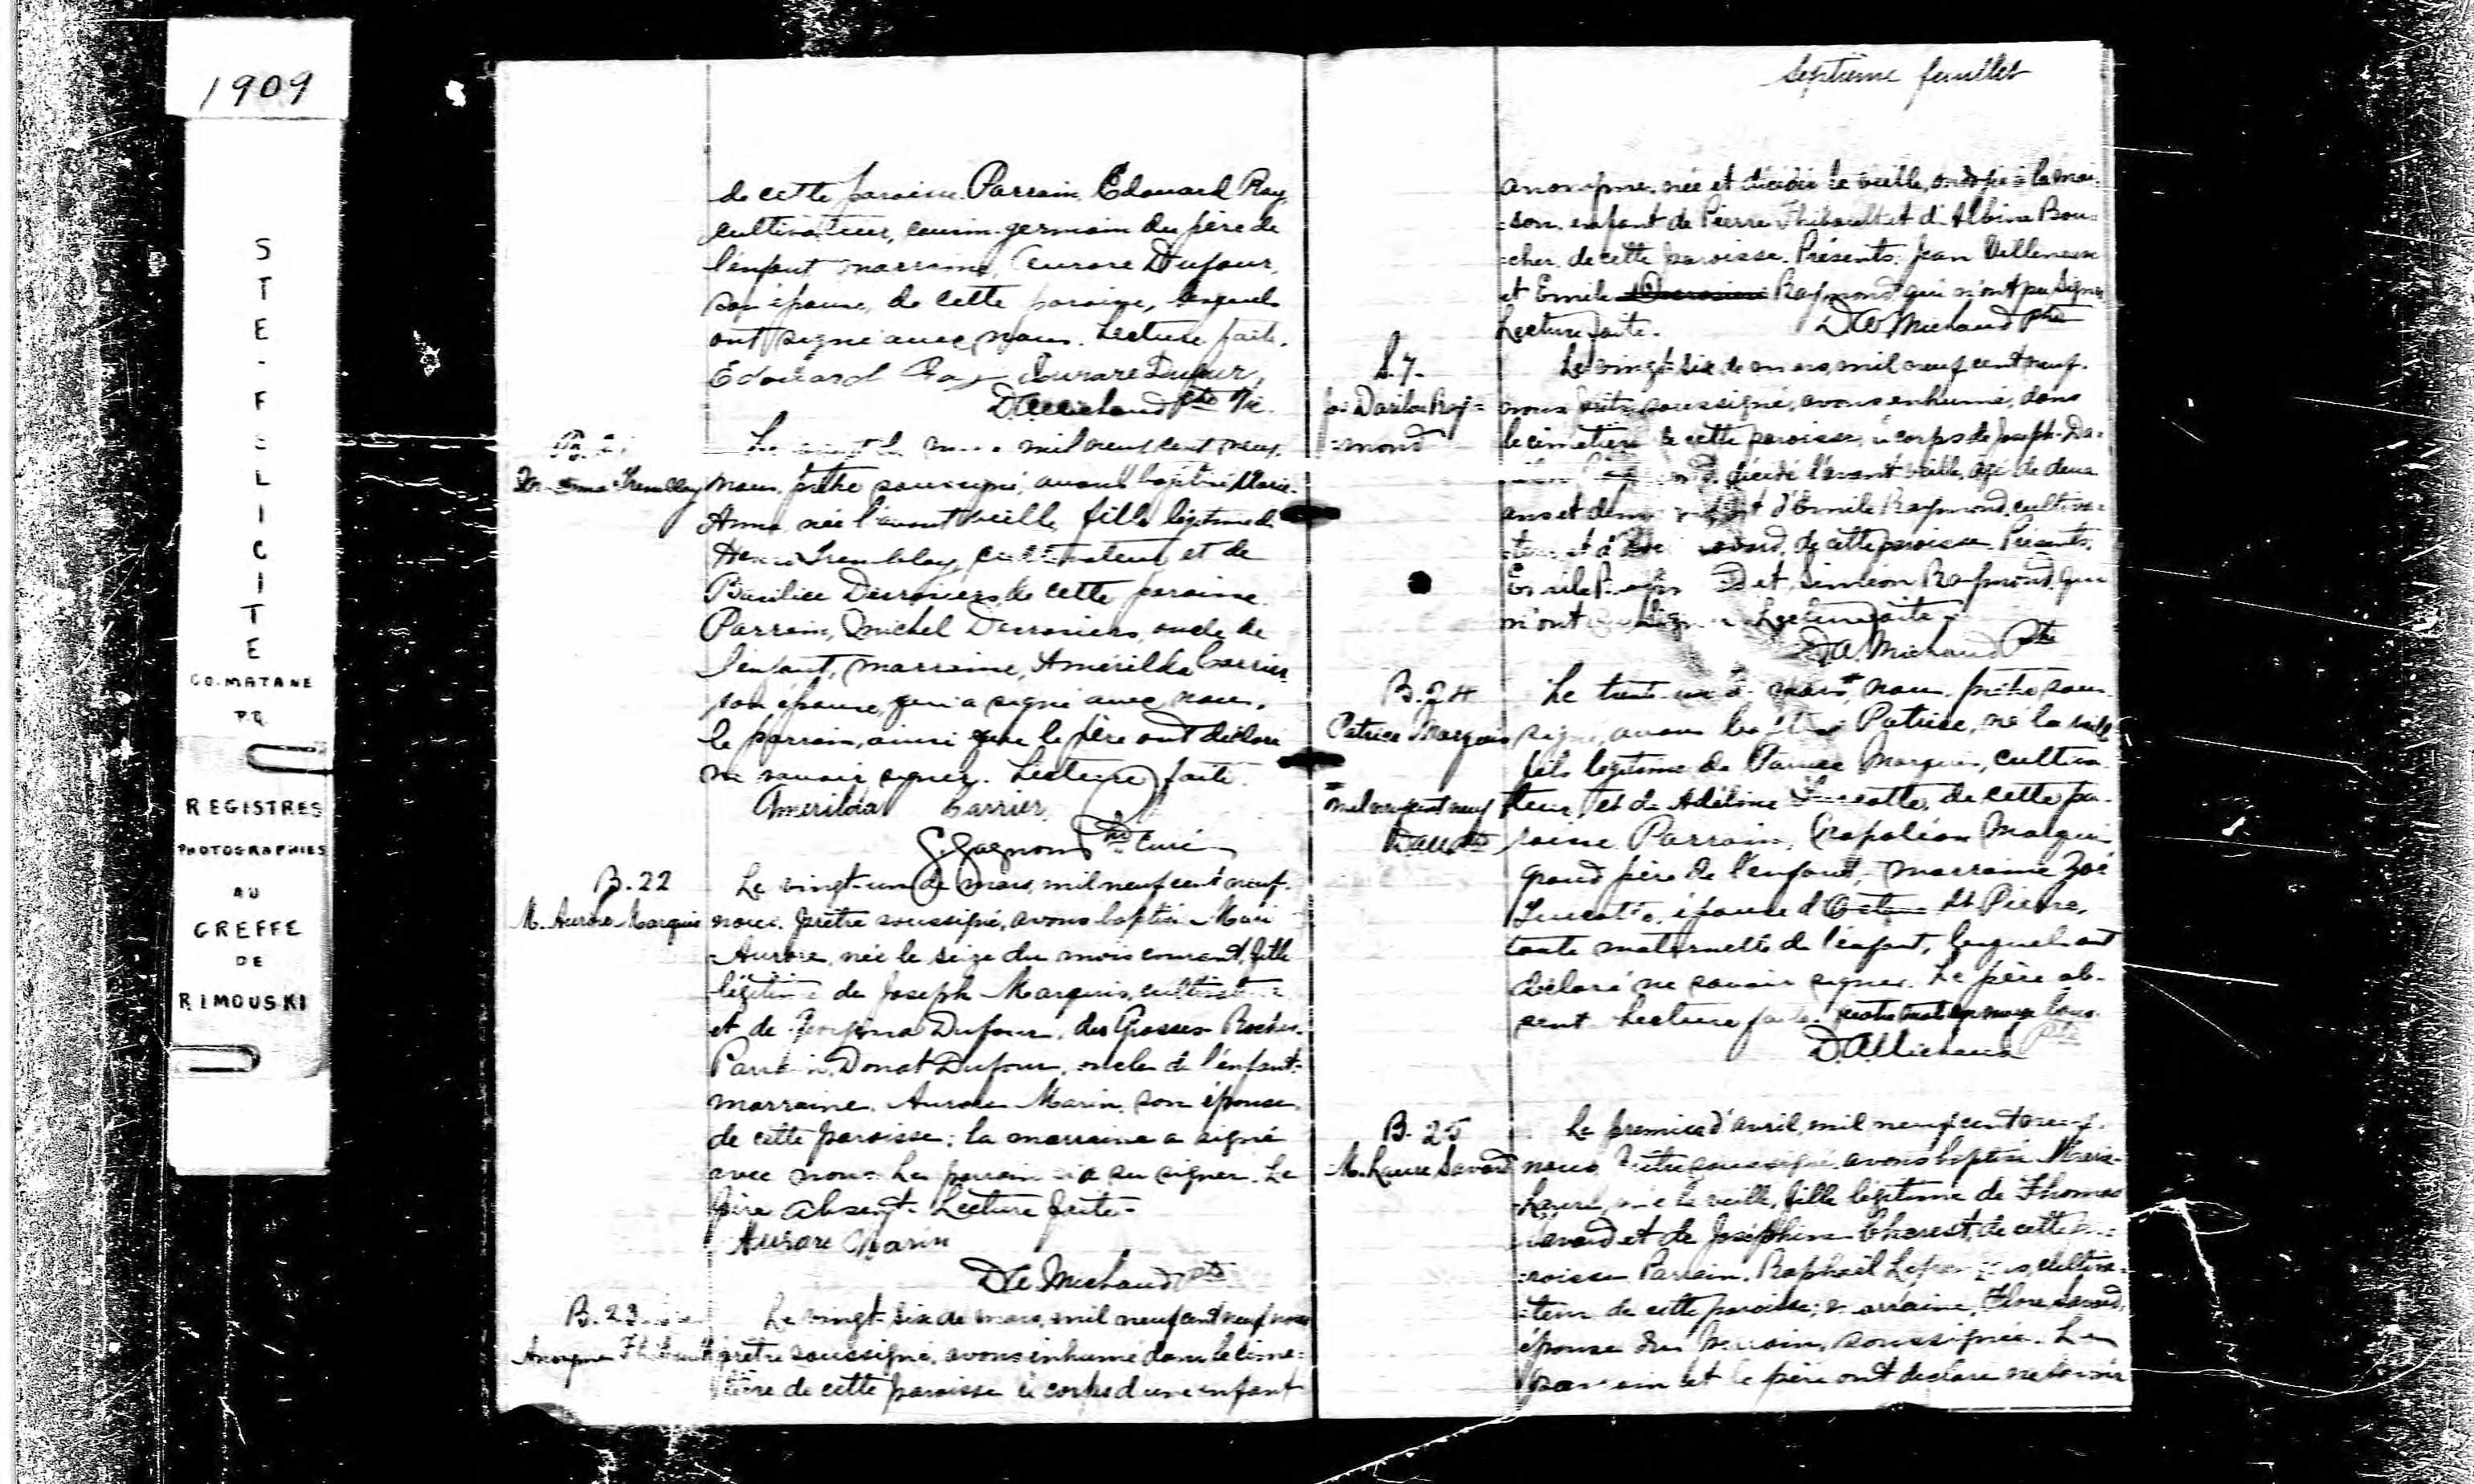 1909
STE-FELICITE
CO. MATANE
P.Q.
REGISTRES
PHOTOGRAPHIES
AU
GREFFE
DE
RIMOUSKI
de cette paroisse. Parrain, Edouard Ray,
cultivateur, cousin-germain du père de
l'enfant marraine, Aurore Dufour,
son épouse, de cette paroisse, lesquels
ont signé avec nous. Lecture faite.
Edouard Ray Aurore Dufour,
D. A. Michaud Ptre
B.
Le mil neuf cent neuf,
Anna Tremblay
nous, prêtre soussigné, avons baptisé Marie-
Anna née l'avant veille, fille légitime de
Henri Tremblay, cultivateur, et de
Basilice Desrosiers, de cette paroisse.
Parrain, Michel Desrosiers, oncle de
l'enfant, marraine, Amérilda Carrier
son épouse, qui a signé avec nous,
le parrain, ainsi que le père ont déclaré
ne savoir signer. Lecture faite.
Amerilda Carrier
G. Gagnon Ptre Curé
B. 22
M. Aurore Marquis
Le vingt-un de mars, mil neuf cent neuf,
nous, prêtre soussigné, avons baptisé Marie
Aurore, née le seize du mois courant, fille
légitime de Joseph Marquis, cultivateur
et de Dufour, des Grosses Roches.
Parrain, Donat Dufour, oncle de l'enfant-
marraine, Aurore Marin, son épouse
de cette paroisse; la marraine a signé
avec nous. Le parrain n'a su signer. Le
père absent. Lecture faite.-
Aurore Marin
D. A. Michaud Ptre
B. 23
Anonyme Thibault
Le vingt-six de mars, mil neuf cent neuf nous
prêtre soussigné, avons inhumé dans le cime-
tière de cette paroisse le corps d'une enfant
Septième feuillet
anonyme, née et décédée la veille, ondoyée à la mai-
=son, enfant de Pierre Thibault et d'Albina Bou=
=cher, de cette paroisse. Présents: Jean Villeneuve
et Emile Raymond qui n'ont pu signer
Lecture faite. D. A. Michaud Ptre
S. 7.
Jos Darila Ray=
=mond
Le vingt-six de mars, mil neuf cent neuf,
nous prêtre soussigné, avons inhumé, dans
le cimetière de cette paroisse, le corps de Joseph-Da=
décédé l'avant veille, âgé de deux
ans et demi enfant d'Emile Raymond, cultiva=
teur et d' de cette paroisse. Présents,
Emile et Siméon Raymond qui
n'ont signer Lecture faite.-
D. A. Michaud Ptre
B. 24
Patrice Marquis
Le trente-un de mars, nous, prêtre sous-
signé, avons baptisé Patrice, né la veille
fils légitime de Marquis, cultiva-
mil neuf cent neuf
teur, et de Adéline de cette pa-
roisse. Parrain, Napoléon Marquis
grand père de l'enfant, marraine Zoé
épouse d' St Pierre,
tante maternelle de l'enfant, lesquels ont
déclaré ne savoir signer. Le père ab-
sent. Lecture faite.
D. A. Michaud Ptre
B. 25
M. Laure Savard
Le premier d'avril, mil neuf cent neuf,
nous Prêtre soussigné, avons baptisé Marie-
Laure, née la veille, fille légitime de Thomas
Savard et de Joséphine Charest, de cette pa=
=roisse. Parrain, Raphaël cultiva=
=teur de cette paroisse; marraine, Flore Savard,
épouse du parrain, soussignée. Le
parrain et le père ont déclaré ne savoir